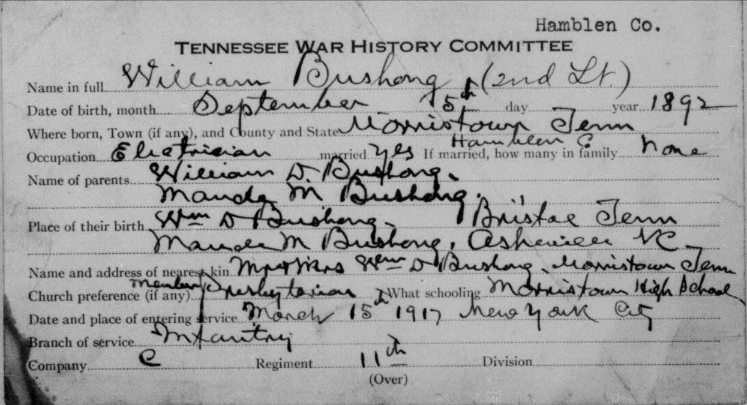 Hamblen Co.
TENNESSEE WAR HISTORY COMMITTEE
Name in full William Bushong (2nd Lt.)
Date of birth, month September 15th day year 1892
Where born, Town (if any), and County and State Morristown Tenn
Hamblen C
Occupation Electrician married yes If married, how many in family none
Name of parents William D. Bushong.
Mauda M Bushong.
Place of their birth Wm D Bushong. Bristol Tenn
Mauda M Bushong, Asheville NC
Name and address of nearest kin Mr & Mrs Wm D Bushong, Morristown Tenn
Church preference (if any) Presbyterian What schooling Morristown High School
Date and place of entering service March 15th 1917 New York City
Branch of service Infantry
Company C Regiment 11th Division
(Over)